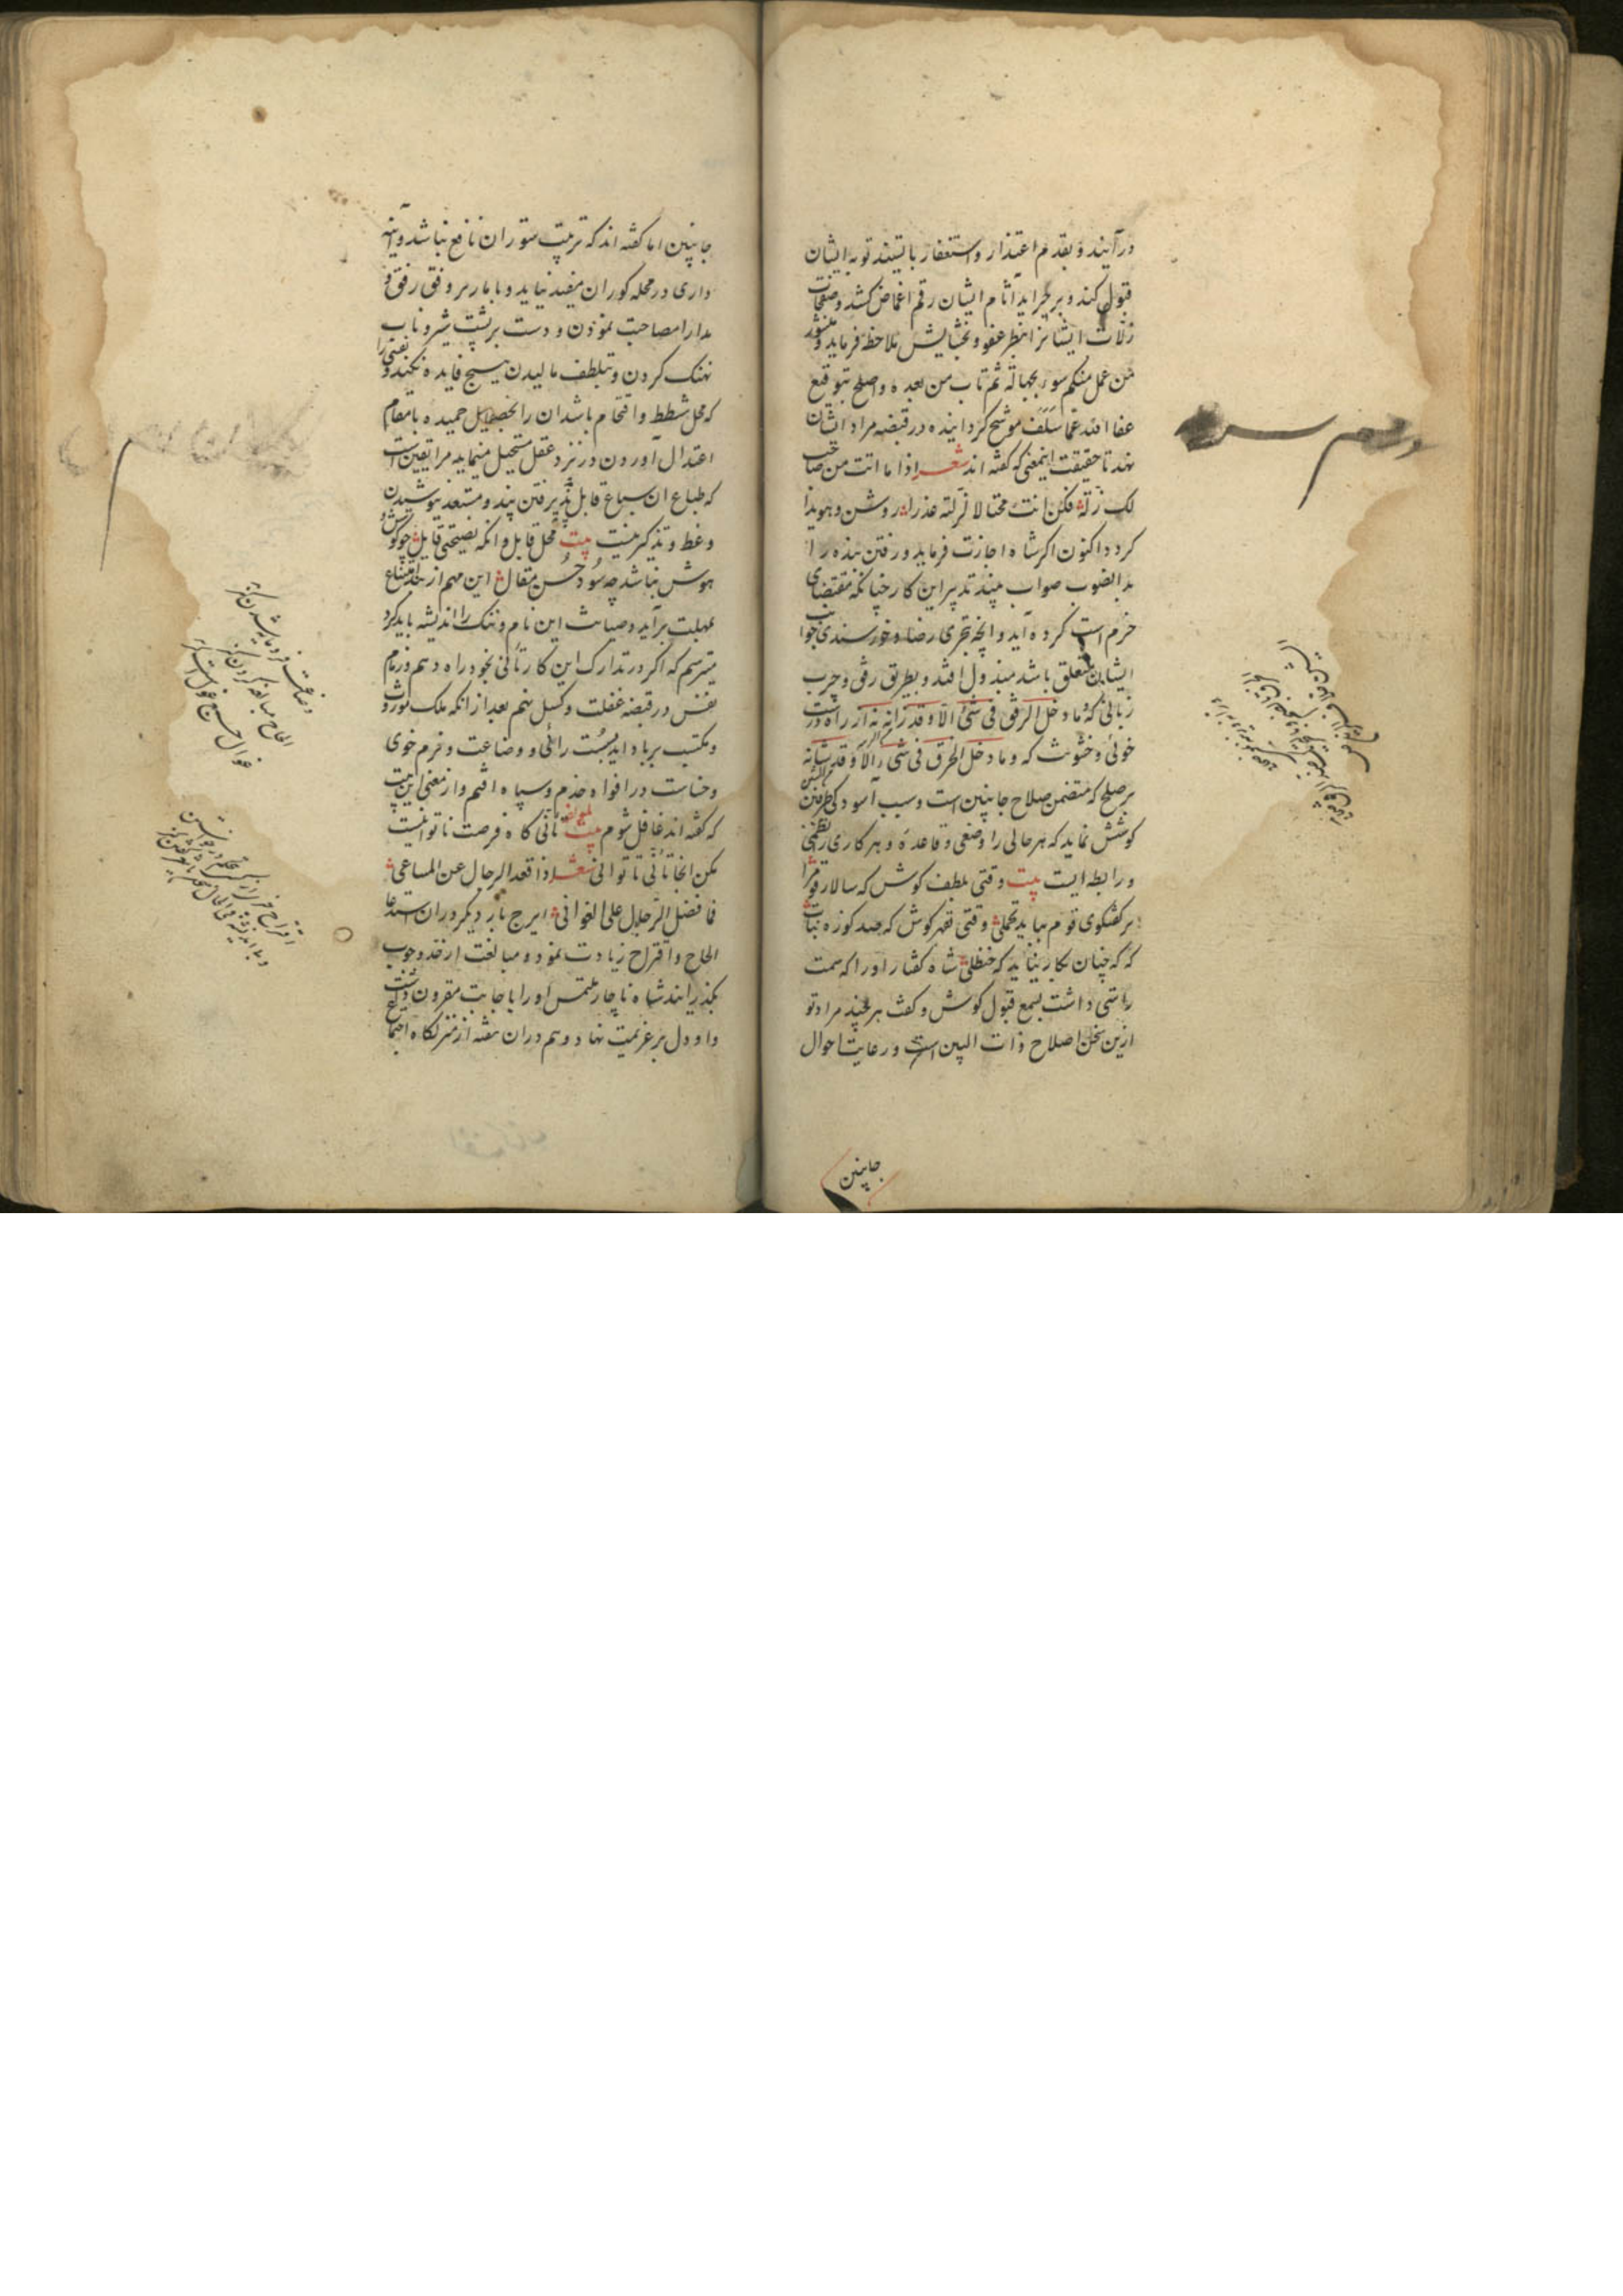 درآیند و بقدم اعتذار و استغفار بایستند توبه ایشان
قبول کند و بر جراید آثام ایشان رقم اغماض کشد و صفحات
زلات ایشانرا بنظر عفو و بخشایش ملاحظه فرماید و منشور
من عمل منکم سوء بجهالة ثم تاب من بعده واصلح بتوقیع
عفا الله عما سلف موشح گردانیده در قبضه مراد ایشان
نهد تا حقیقت اینمعنی که گفته اند شعر اذا ما اتت من صاحب
لک زلة فکن انت محتالا لزلته عذرا روشن و هویدا
گردد اکنون اگر شاه اجازت فرماید و رفتن بنده را
بدانصوب صواب بیند تدبیر این کار چنانکه مقتضای
حزم است کرده آید و آنچه بتحری رضا و خورسندی جوانب
ایشان متعلق باشد مبذول افتد و بطریق رفق و چرب
زبانی که ما دخل الرفق فی شئ الا وقد زانه نه از راه درشت
خوئی و خشونت که وما دخل الخرق فی شی الا وقد شانه
بر صلح که متضمن صلاح جانبین است و سبب آسودگی طرفین
کوشش نماید که هر حالی را وضعی و قاعدهٔ و هر کاری را نظمی
و رابطه ایست بیت وقتی بلطف کوش که سالار قوم را
بر گفتگوی قوم بباید تحملی وقتی بقهر کوش که صد کوزه نبات
گه گه چنان بکار نیاید که حنظلی شاه گفتار او را که سمت
راستی داشت بسمع قبول گوش و گفت هرچند مراد تو
ازین سخن اصلاح ذات البین است و رعایت احوال
جانبین
جانبین اما گفته اند که تربیت ستوران نافع نباشد و آینه
داری در محله کوران مفید نیاید و با مار بر وفق رفق و
مدارا مصاحبت نمودن و دست بر پشت شیر و ناب
نهنگ کردن و بتلطف مالیدن هیچ فایده نکند و نفسی را
که محل شطط و اقتحام باشد آن را بخصایل حمیده بامقام
اعتدال آوردن در نزد عقل مستحیل مینماید مرا یقین است
که طباع آن سباع قابل پذیرفتن پند و مستعد نیوشیدن
وعظ و تذکیر نیست بیت محل قابل و آنگه نصیحتی قایل چو گوش و
هوش نباشد چه سود حسن مقال این مهم از حد امتناع
بمهلت برآید و صیانت این نام و ننگ را اندیشه باید کرد
میترسم که اگر در تدارک این کار تأنی بخود راه دهم و زمام
نفس در قبضه غفلت و کسل نهم بعد از آنکه ملک موروث
و مکتسب برباد آید بسست رائی و وضاعت و نرم خوی
و خناست در افواه خدم و سپاه افتم و از معنی این بیت
که گفته اند غافل شوم لمؤلفه بیت تأنی گاه فرصت ناتوانیست
مکن آنجا تأنی تا توانی شعر اذا قعد الرجال عن المساعی
فما فضل الرجال علی الغوانی ایرج بار دیگر در آن استدعا
الحاح و اقتراح زیادت نمود و مبالغت از حد وجوب
بگذرانید شاه ناچار ملتمس او را باجابت مقرون داشت
و او دل بر عزیمت نهاد و هم در آن هفته از منزلگاه اجتماع